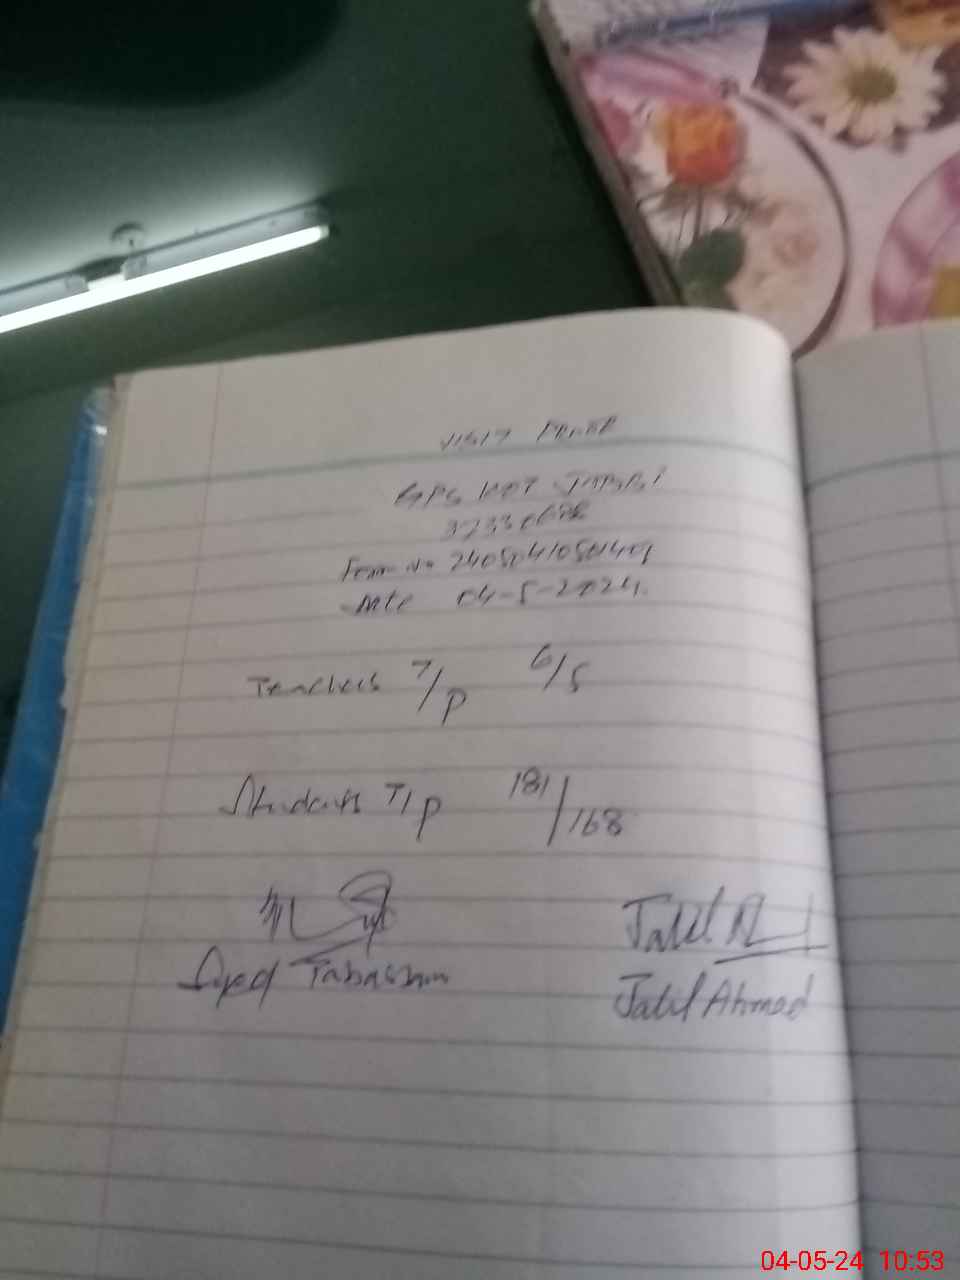 VISIT PROOF
GPS KOT
Form No 
Date 04-5-2024.
Teachers T/P 6/5
Students T/P 181/168
Syed Tabassum
Jalil A
Jalil Ahmed
04-05-24 10:53